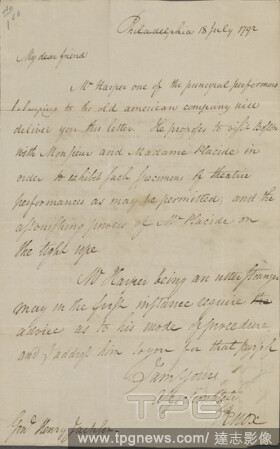 Philadelphia 18 July 1792
My dear friend
Mr Harper one of the principal performers
belonging to the old american company will
deliver you this letter. He proposes to visit Boston
with Monsieur and Madame Placide in
order to exhibit such specimens of theatre
performances as may be permitted, and the
astonishing powers of Mr Placide on
the tight rope
Mr Harper being an utter stranger
may in the first instance require the
advice as to his mode of procedure
and I address him to you for that purpose
I am yours
Knox
Genl Henry Jackson
TPG
www.tpgnews.com/ 達志影像